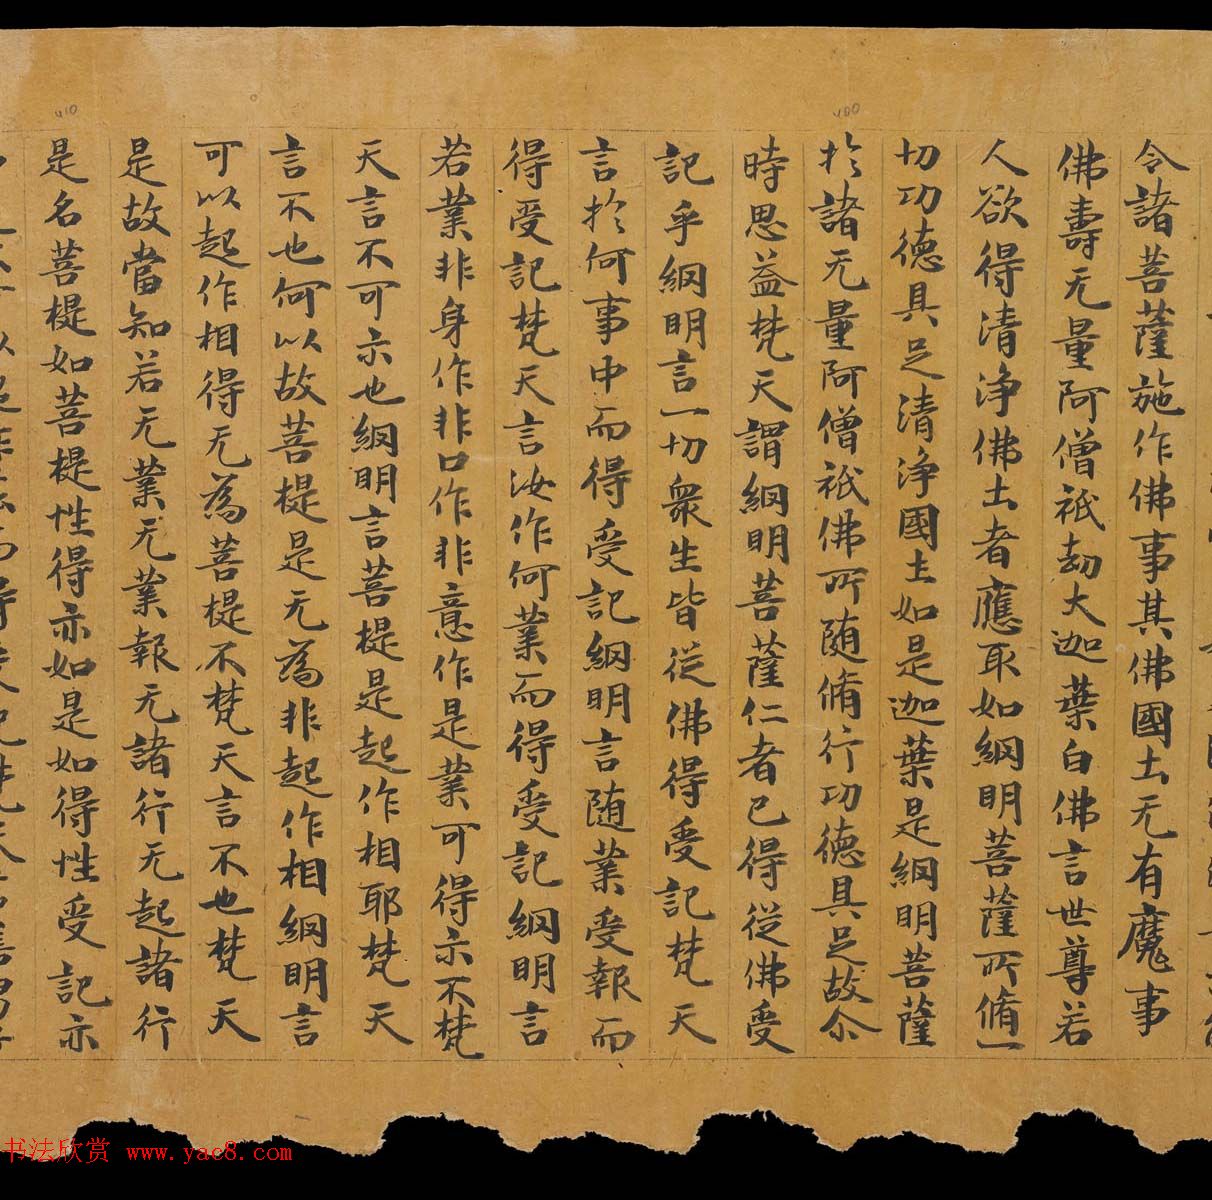 令諸菩薩施作佛事其佛國土无有魔事
佛壽无量阿僧祇劫大迦葉白佛言世尊若
人欲得清淨佛土者應取如網明菩薩所脩一
切功德具足清淨國土如是迦葉是網明菩薩
於諸无量阿僧祇佛所随脩行功德具足故尒
時思益梵天謂網明菩薩仁者已得従佛受
記乎網明言一切衆生皆従佛得受記梵天
言於何事中而得受記網明言随業受報而
得受記梵天言汝作何業而得受記網明言
若業非身作非口作非意作是業可得示不梵
天言不可示也網明言菩提是起作相耶梵天
言不也何以故菩提是无為非起作相網明言
可以起作相得无為菩提不梵天言不也梵天
是故當知若无業无業報无諸行无起諸行
是名菩提如菩提性得亦如是如得性受記亦
400
410
书法欣赏 www.yac8.com